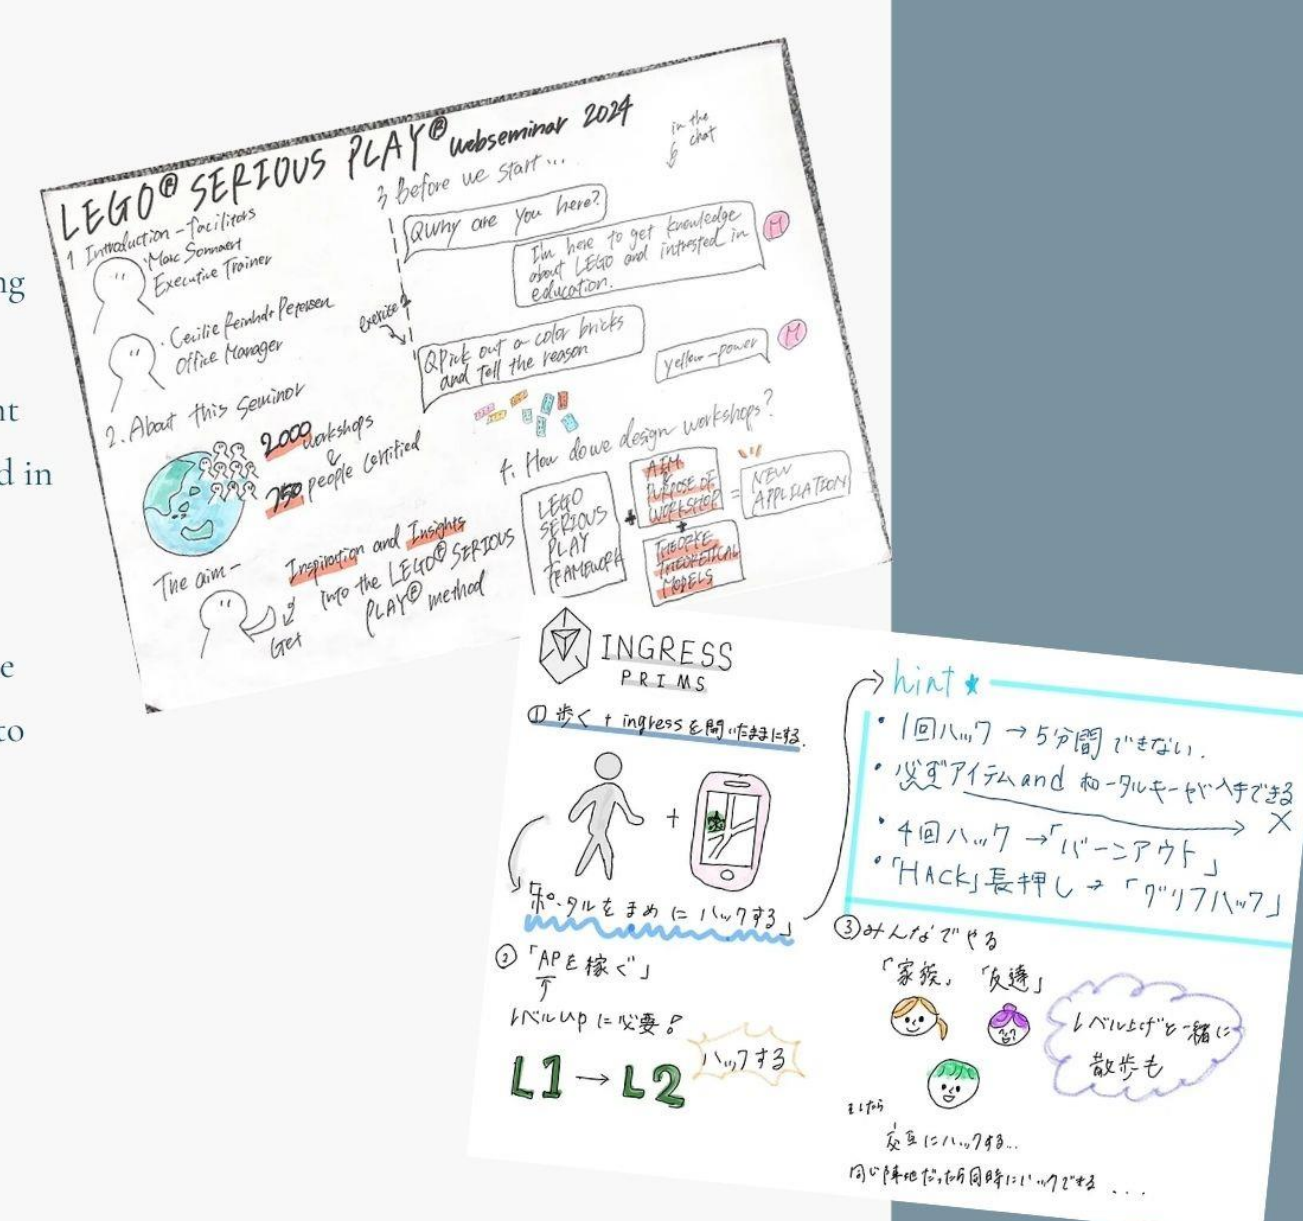 ng
nt
d in
e
to
LEGO® SERIOUS PLAY® webseminar 2024
1 Introduction - facilitors
Marc Sonnaert
Executive Trainer
Cecilie Reinhdt Petersen
Office Manager
2. About this seminor
2.000 workshops
&
750 people certified
The aim-
Get
Inspiration and Insights
into the LEGO® SERIOUS
PLAY® method
3 Before we start...
in the
chat
QWhy are you here?
I'm here to get knowledge
about LEGO and intrested in
education.
M
exercise
QPick out a color bricks
and tell the reason
yellow-power
M
4. How do we design workshops?
LEGO
SERIOUS
PLAY
FRAMEWORK
+
AIM
&
PURPOSE OF
WORKSHOP
+
THEORETICAL
MODELS
=
NEW
APPLICATION
INGRESS
PRIMS
① 歩く + ingressを開いたままにする.
+
「ポータルをまめにハックする」
② 「APを稼ぐ」
レベルupに必要!
L1 → L2
ハックする
hint
・1回ハック → 5分間できない.
・必ずアイテムand ポータルキーが入手できる
×
・4回ハック →「バーンアウト」
・「HACK」長押し → 「グリフハック」
③ みんなでやる
「家族」 「友達」
レベル上げと一緒に
散歩も
交互にハックする...
同じ陣地だったら同時にハックできる ...